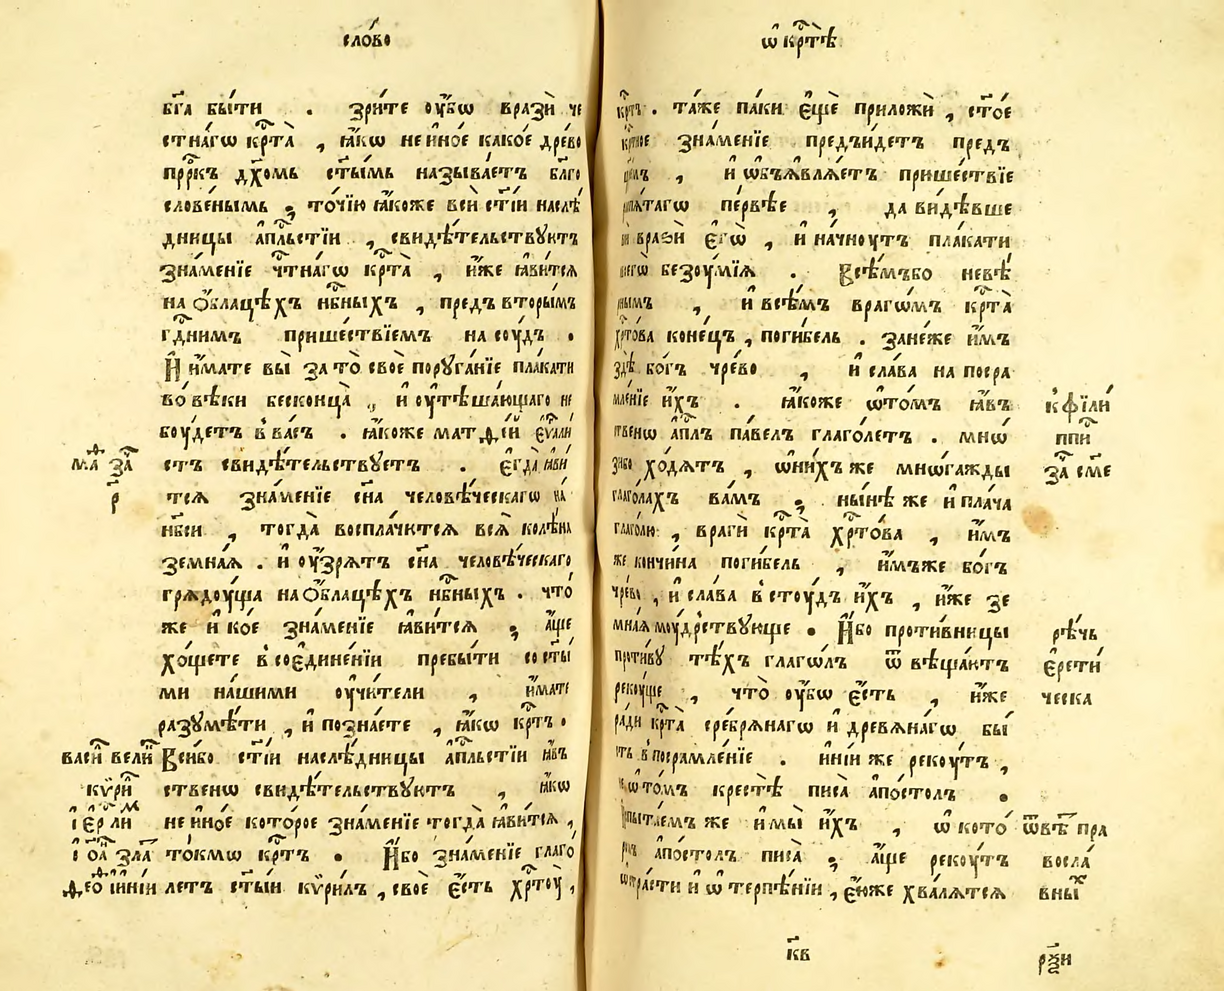 сло́во
бг҃а бы́ти . зри́те оу҆́бѡ врази̂ че
стна́гѡ крⷭ҇та̀ , ꙗ҆́кѡ не и҆но́е како́е дре́во
прⷪ҇рⷪ҇къ дх҃омь ст҃ы́мь называ́етъ блг҃о
слове́нымь , то́чїю ꙗ҆́коже вси̂ ст҃і́и наслѣ́
дницы а҆пⷭ҇льстїи , свидѣ́тельствꙋютъ
зна́менїе чⷭ҇тна́гѡ крⷭ҇та̀ , и҆́же ꙗ҆ви́тсѧ
на ѻ҆́блацѣхъ нбⷭ҇ныхъ , предъ вторы́мъ
гдⷭ҇нимъ прише́ствїемъ на сꙋ́дъ .
И҆ и҆́мате вы̀ за то̀ своѐ порꙋга́нїе пла́кати
во́ вѣки бесконца̀ , и҆ оу҆тѣша́ющаго не
бꙋ́детъ в́ ва́съ . ꙗ҆́коже матѳі́й є҆ѵⷢ҇али
стъ свидѣ́тельствꙋетъ . є҆гда̀ ꙗ҆ви́
тсѧ зна́менїе сн҃а человѣ́ческагѡ на́
нб҃си , тогда̀ воспла́чютсѧ всѧ̀ колѣ́на
земна́ѧ . и҆ оу҆́зрѧтъ сн҃а человѣ́ческаго
грѧдꙋ́ща на ѻ҆́блацѣхъ нбⷭ҇ныхъ . что́
же и҆ ко́е зна́менїе ꙗ҆ви́тсѧ , а҆́ще
хо́щете в́ соедине́нїи пребы́ти со ст҃ы́
ми на́шими оу҆чи́тели , и҆́мате
разꙋмѣ́ти , и҆ позна́ете , ꙗ҆́кѡ крⷭ҇тъ .
Вси́бо ст҃і́и наслѣ́дницы а҆пⷭ҇льстїи ꙗ҆́въ
ственѡ свидѣ́тельствꙋютъ , ꙗ҆́кѡ
не и҆но́е кото́рое зна́менїе тогда̀ ꙗ҆ви́тсѧ ,
то́кмѡ крⷭ҇тъ . И҆́бо зна́менїе глаго́
летъ ст҃ы́и кѷри́лъ , своѐ є҆́сть хрⷭ҇тꙋ̀ ,
ма за҄
р҃
васи́ вели́
кѷри́
і҆ є҆р ли
і҆ѻа҄ зла
ѳео́ и҆нїи
ѡ҆ крⷭ҇тѣ̀
крⷭ҇тъ . та́же па́ки є҆щѐ приложи̂ , ст҃о́е
зна́менїе предъи́детъ предъ
, и҆ ѡ҆бъѧвлѧ́етъ прише́ствїе
пе́рвѣе , да ви́дѣвше
врази̂ є҆гѡ̀ , и҆ начнꙋ́тъ пла́кати
безꙋ́мїѧ . Всѣ́мъбо невѣ́
, и҆ всѣ́мъ врагѡ́мъ крⷭ҇та̀
хрⷭ҇то́ва коне́цъ , поги́бель . зане́же и҆́мъ
здѣ̀ бо́гъ чре́во , и҆ сла́ва на посра
мле́нїе и҆́хъ . ꙗ҆́коже ѡ҆то́мъ ꙗ҆́въ
ственѡ а҆пⷭ҇лъ па́велъ глаго́летъ . мно́ѕ
зибо хо́дѧтъ , ѡ҆ ни́хъ же мно́гажды
глаго́лахъ ва́мъ , ны́нѣ же и҆ пла́ча
глаго́лю , враги̂ крⷭ҇та̀ хрⷭ҇то́ва , и҆́мъ
же кончи́на поги́бель , и҆́мъже бо́гъ
чре́во , и҆ сла́ва в́ стꙋдъ и҆́хъ , и҆́же зе
мна́ѧ мꙋ́дрствꙋюще . И҆́бо проти́вницы
проти́вꙋ тѣ́хъ глаго́лъ ѿвѣща́ютъ
рекꙋ́ще , что̀ оу҆́бѡ є҆́сть , и҆́же
ра́ди крⷭ҇та̀ сре́брѧнагѡ и҆ древѧ́нагѡ бы́
ть в́ посрамле́нїе . и҆ні́и же рекꙋ́тъ ,
ѡ҆ то́мъ кресте̂ писа̀ а҆по́столъ .
же и҆ мы̀ и҆́хъ , ѡ҆ кото́
а҆по́столъ писа̀ , а҆́ще рекꙋ́тъ
ѡ҆ стра́сти и҆ ѡ҆ терпѣ́нїи , є҆́юже хва́лѧтсѧ
ќ филі́
ппи́
за҄ сме
рѣ́чь
є҆рети́
ческа
ѿвѣ́ пра
восла́
вны́х
к҃в
рѯ҃и